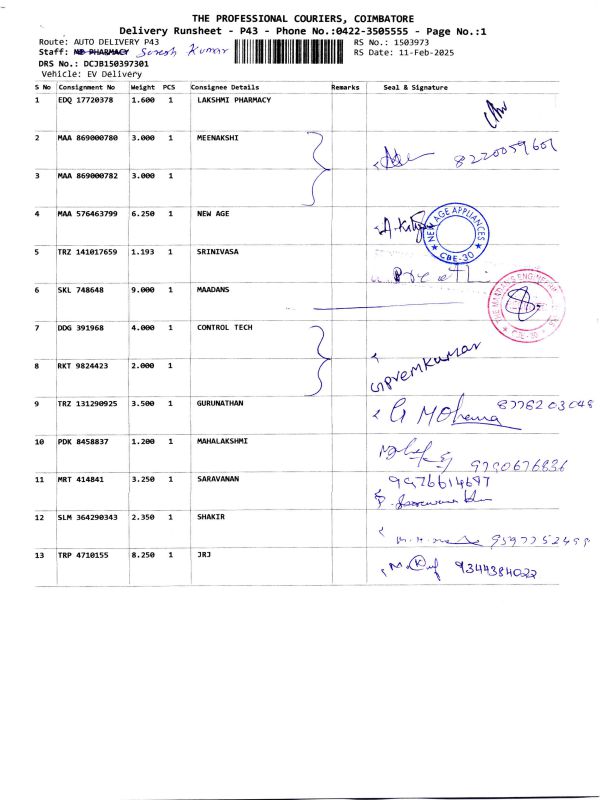 THE PROFESSIONAL COURIERS, COIMBATORE
Delivery Runsheet - P43 - Phone No.:0422-3505555 - Page No.:1
Route: AUTO DELIVERY P43 RS No.: 1503973
Staff: MD PHARMACY Suresh Kumar RS Date: 11-Feb-2025
DRS No.: DCJB150397301
Vehicle: EV Delivery
S No Consignment No Weight PCS Consignee Details Remarks Seal & Signature
1 EDQ 17720378 1.600 1 LAKSHMI PHARMACY
2 MAA 869000780 3.000 1 MEENAKSHI 8220059601
3 MAA 869000782 3.000 1
4 MAA 576463799 6.250 1 NEW AGE NEW AGE APPLIANCES CBE-30
5 TRZ 141017659 1.193 1 SRINIVASA
6 SKL 748648 9.000 1 MAADANS
7 DDG 391968 4.000 1 CONTROL TECH Premkumar
8 RKT 9824423 2.000 1
9 TRZ 131290925 3.500 1 GURUNATHAN G Mohana 8778203048
10 PDK 8458837 1.200 1 MAHALAKSHMI 9790676836
11 MRT 414841 3.250 1 SARAVANAN 9976614697
12 SLM 364290343 2.350 1 SHAKIR
13 TRP 4710155 8.250 1 JRJ 9344384022